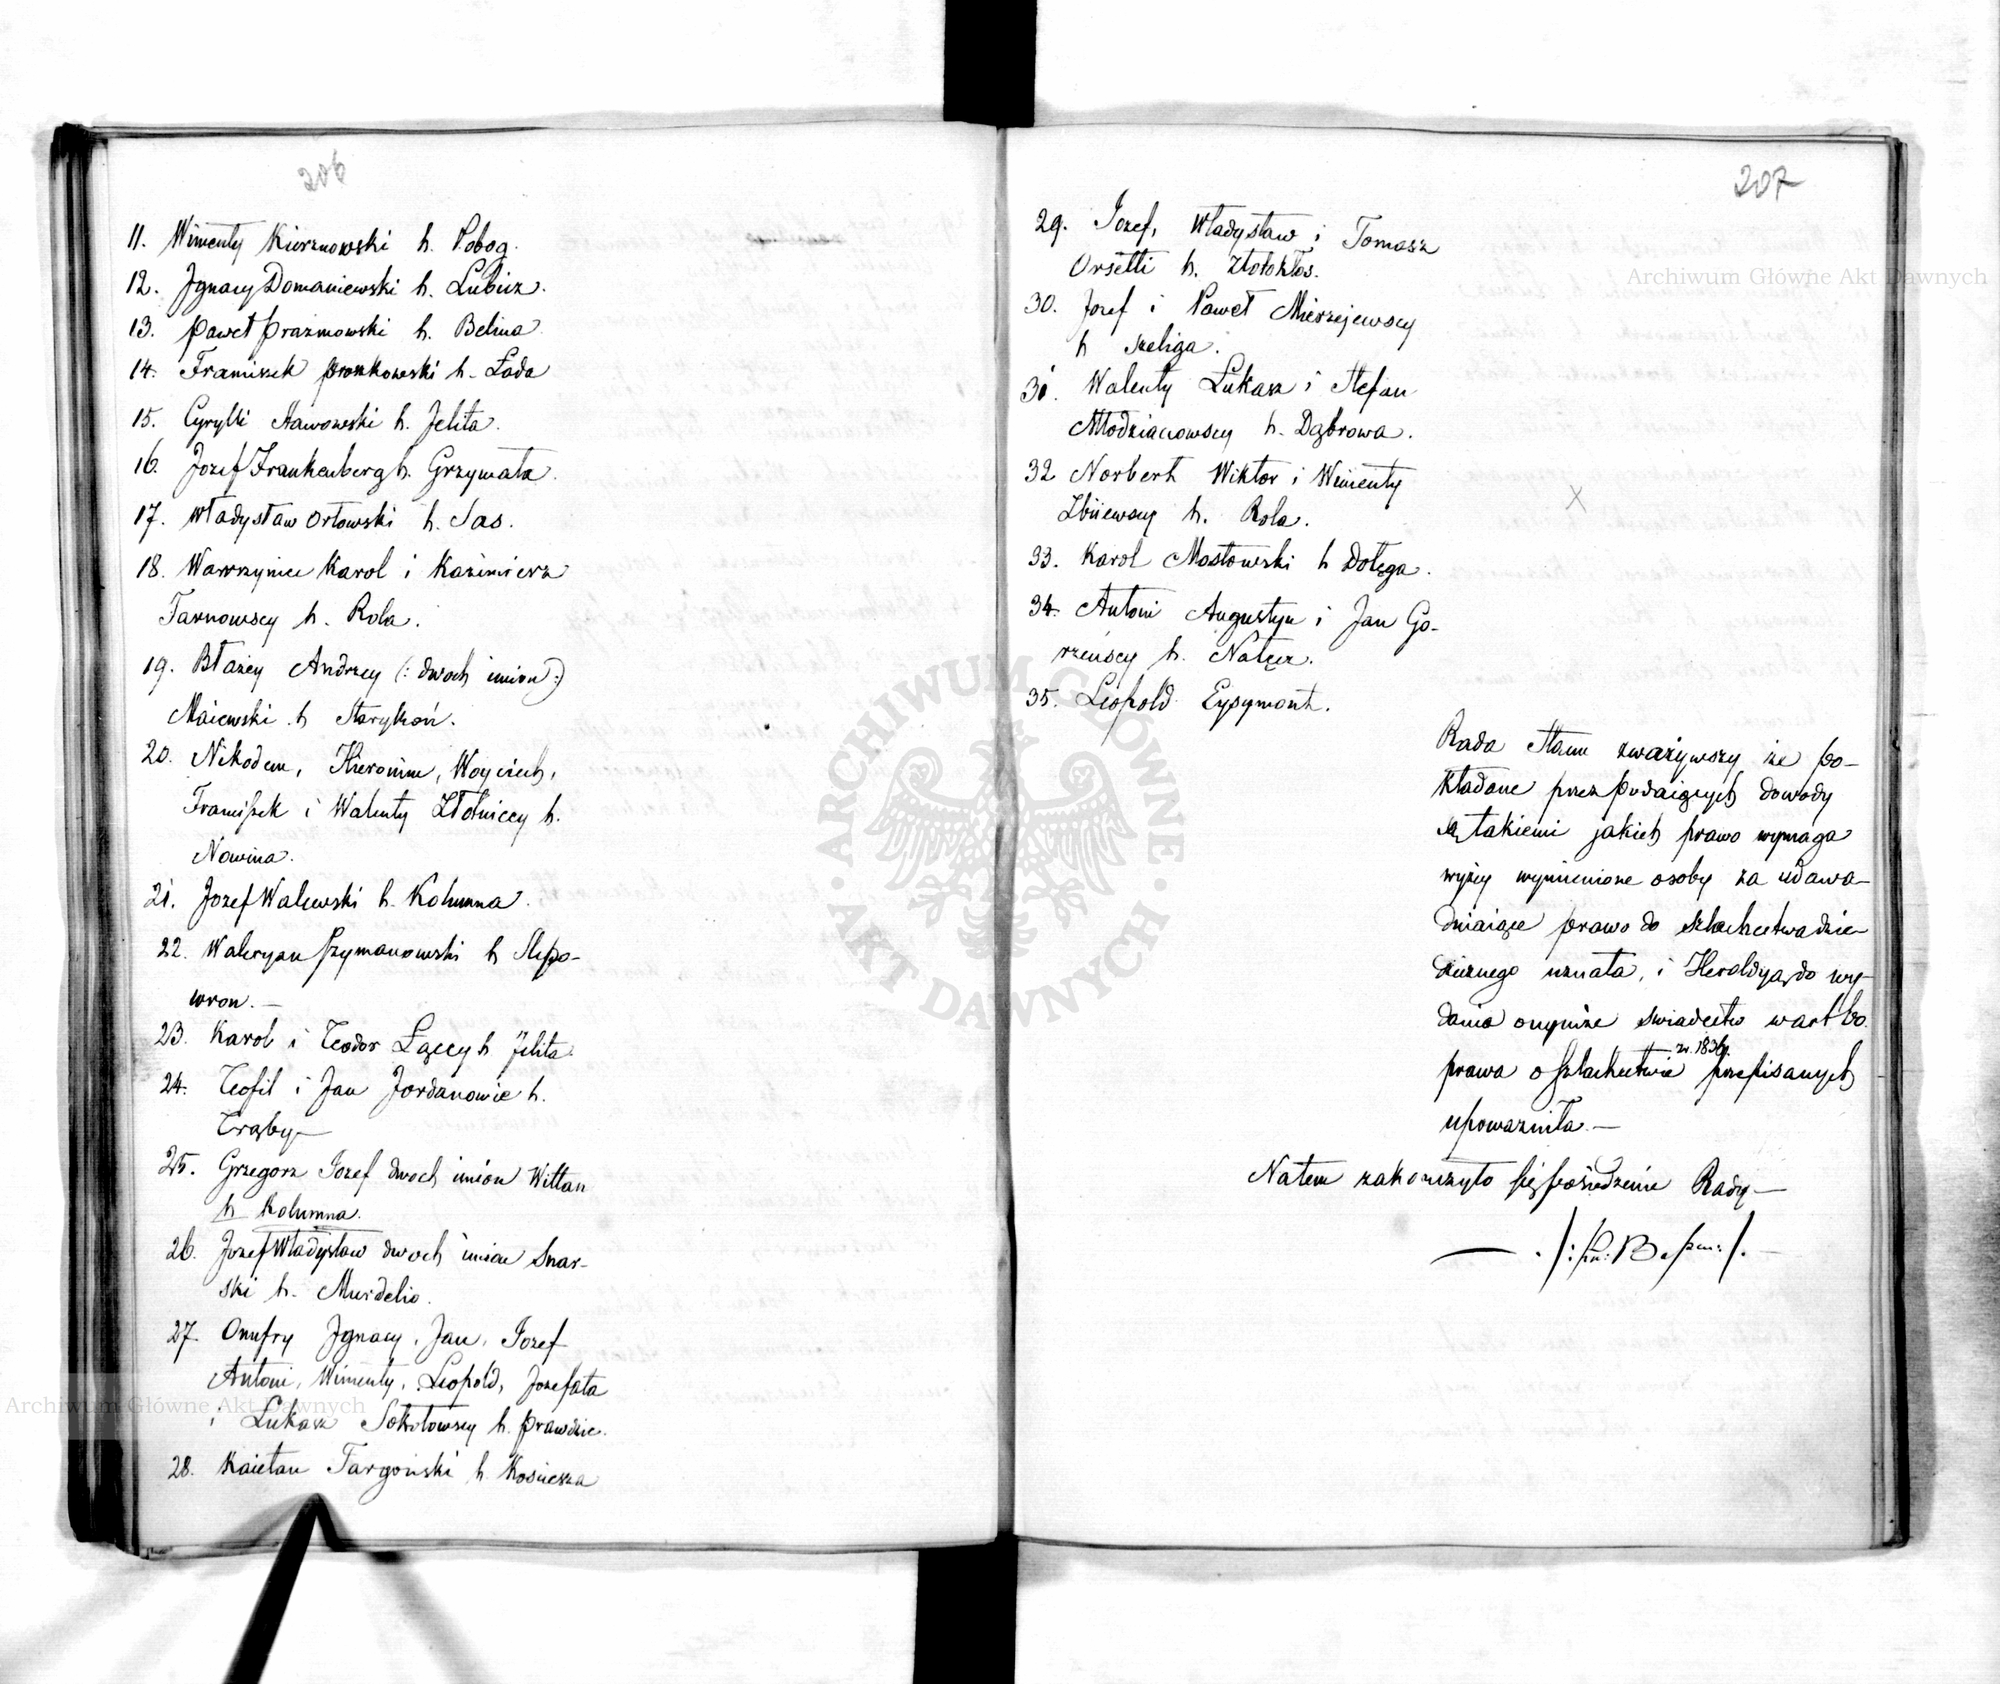 206
11. Wincenty Kierznowski h. Pobog.
12. Jgnacy Domaniewski h. Lubicz.
13. Paweł Prazmowski h. Belina
14. Franciszek Pronkowski h. Łada
15. Cyrylli Stawowski h. Jelita.
16. Jozef Frankenberg h. Grzymała.
17. Władysław Orłowski h. Sas.
18. Wawrzyniec Karol i Kazimierz
Tarnowscy h. Rola.
19. Błażey Andrzey (: dwoch imion :)
Maiewski h Starykoń.
20. Nikodem, Hieronim, Woyciech,
Franciszek i Walenty Złotniccy h.
Nowina.
21. Jozef Walewski h. Kolumna.
22. Waleryan Szymanowski h Slepo-
wron. —
23. Karol i Teodor Łąccy h Jelita.
24. Teofil i Jan Jordanowie h.
Trąby —
25. Grzegorz Jozef dwoch imion Wittan
h Kolumna.
26. Jozef Władysław dwoch imion Snar-
ski h. Murdelio.
27. Onufry Jgnacy, Jan, Jozef
Antoni, Wincenty, Leopold, Jozefata
i Łukasz Sokołowscy h. Prawdzic.
28. Kaietan Targoński h. Kosciesza
207
29. Jozef, Władysław i Tomasz
Orsetti h. Złotokłos.
30. Jozef i Paweł Mierzejewscy
h Szeliga.
31. Walenty Łukasz i Stefan
Młodzianowscy h. Dąbrowa.
32 Norbert Wiktor i Wincenty
Zbijewscy h. Rola.
33. Karol Mostowski h Dołęga.
34. Antoni Augustyn i Jan Go-
rzeńscy h. Nałęcz.
35. Leopold Eysymont.
Rada Stanu zważywszy że po-
kładane przez Podaiących dowody
są takiemi jakich prawo wymaga
wyżey wymienione osoby za udawa-
dniaiące prawo do szlachectwa dzie-
dzicznego uznała, i Heroldyą do wy-
dania onymże swiadectw w art 60.
prawa o Szlachectwie z r. 1836. przepisanych
upowazniła. —
Natem zakonczyło się posiedzenie Rady —
Archiwum Główne Akt Dawnych
Archiwum Główne Akt Dawnych
ARCHIWUM GŁÓWNE · AKT DAWNYCH ·